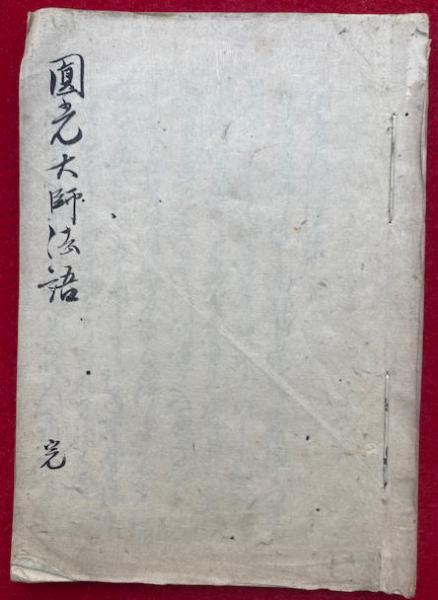 圓光大師法語
完